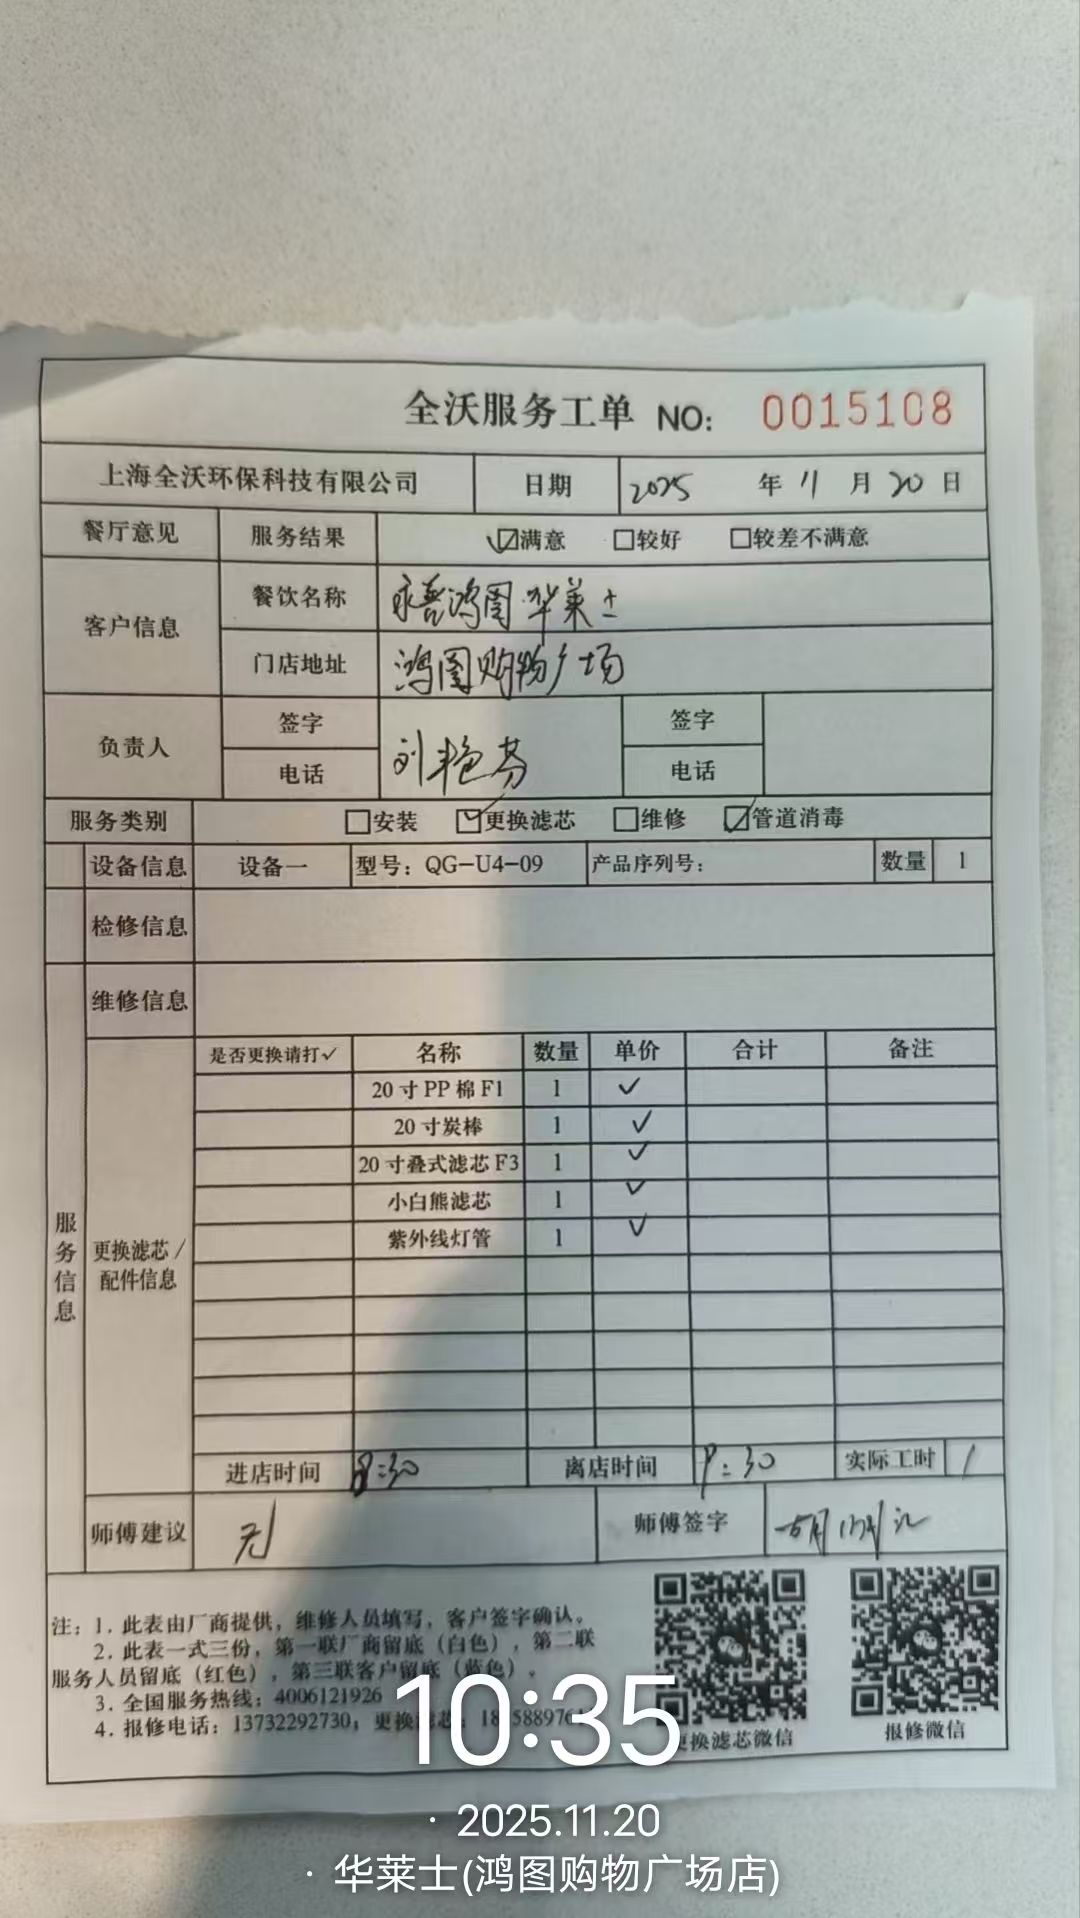 全沃服务工单 NO: 0015108
上海全沃环保科技有限公司 日期 2025 年 11 月 20 日
餐厅意见 服务结果 ☑满意 □较好 □较差不满意
客户信息 餐饮名称 永善鸿图华莱士
门店地址 鸿图购物广场
负责人 签字 刘艳芬 签字
电话 电话
服务类别 □安装 ☑更换滤芯 □维修 ☑管道消毒
设备信息 设备一 型号：QG-U4-09 产品序列号： 数量 1
检修信息
维修信息
服务信息
更换滤芯/配件信息
是否更换请打✓ 名称 数量 单价 合计 备注
20寸PP棉F1 1 ✓
20寸炭棒 1 ✓
20寸叠式滤芯F3 1 ✓
小白熊滤芯 1 ✓
紫外线灯管 1 ✓
进店时间 8:30 离店时间 9:30 实际工时 1
师傅建议 无 师傅签字
注：1. 此表由厂商提供，维修人员填写，客户签字确认。
2. 此表一式三份，第一联厂商留底（白色），第二联
服务人员留底（红色），第三联客户留底（蓝色）。
3. 全国服务热线：4006121926
4. 报修电话：13732292730；更换
更换滤芯微信 报修微信
10:35
· 2025.11.20
· 华莱士(鸿图购物广场店)